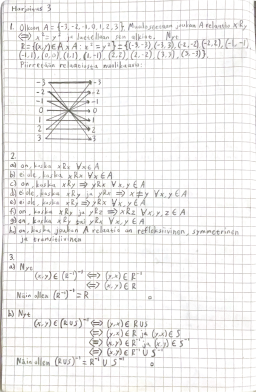 Harjoitus 3
1. Olkoon A = {-3, -2, -1, 0, 1, 2, 3}. Muodostetaan joukon A relaatio xRy
⟺ x² = y² ja luetellaan sen alkiot. Nyt
R = {(x,y) ∈ A × A : x² = y²} = {(-3,-3), (-3,3), (-2,-2), (-2,2), (-1,-1),
(-1,1), (0,0), (1,1), (1,-1), (2,2), (2,-2), (3,3), (3,-3)}.
Piirretään relaatiosta nuolikaavio:
-3 -3
-2 -2
-1 -1
0 0
1 1
2 2
3 3
2.
a) on, koska xRx ∀x ∈ A
b) ei ole, koska xRx ∀x ∈ A
c) on, koska xRy ⟹ yRx ∀x, y ∈ A
d) ei ole, koska xRy ja yRx ⟹ x ≠ y ∀x, y ∈ A
e) ei ole, koska xRy ⟹ yRx ∀x, y ∈ A
f) on, koska xRy ja yRz ⟹ xRz ∀x, y, z ∈ A
g) on, koska xRy tai yRx ∀x, y ∈ A
h) on, koska joukon A relaatio on refleksiivinen, symmetrinen
ja transitiivinen
3.
a) Nyt
(x,y) ∈ (R⁻¹)⁻¹ ⟺ (y,x) ∈ R⁻¹
⟺ (x,y) ∈ R
Näin ollen (R⁻¹)⁻¹ = R
b) Nyt
(x,y) ∈ (R∪S)⁻¹ ⟺ (y,x) ∈ R∪S
⟺ (y,x) ∈ R ja (y,x) ∈ S
⟺ (x,y) ∈ R⁻¹ ja (x,y) ∈ S⁻¹
⟺ (x,y) ∈ R⁻¹ ∪ S⁻¹
Näin ollen (R∪S)⁻¹ = R⁻¹ ∪ S⁻¹